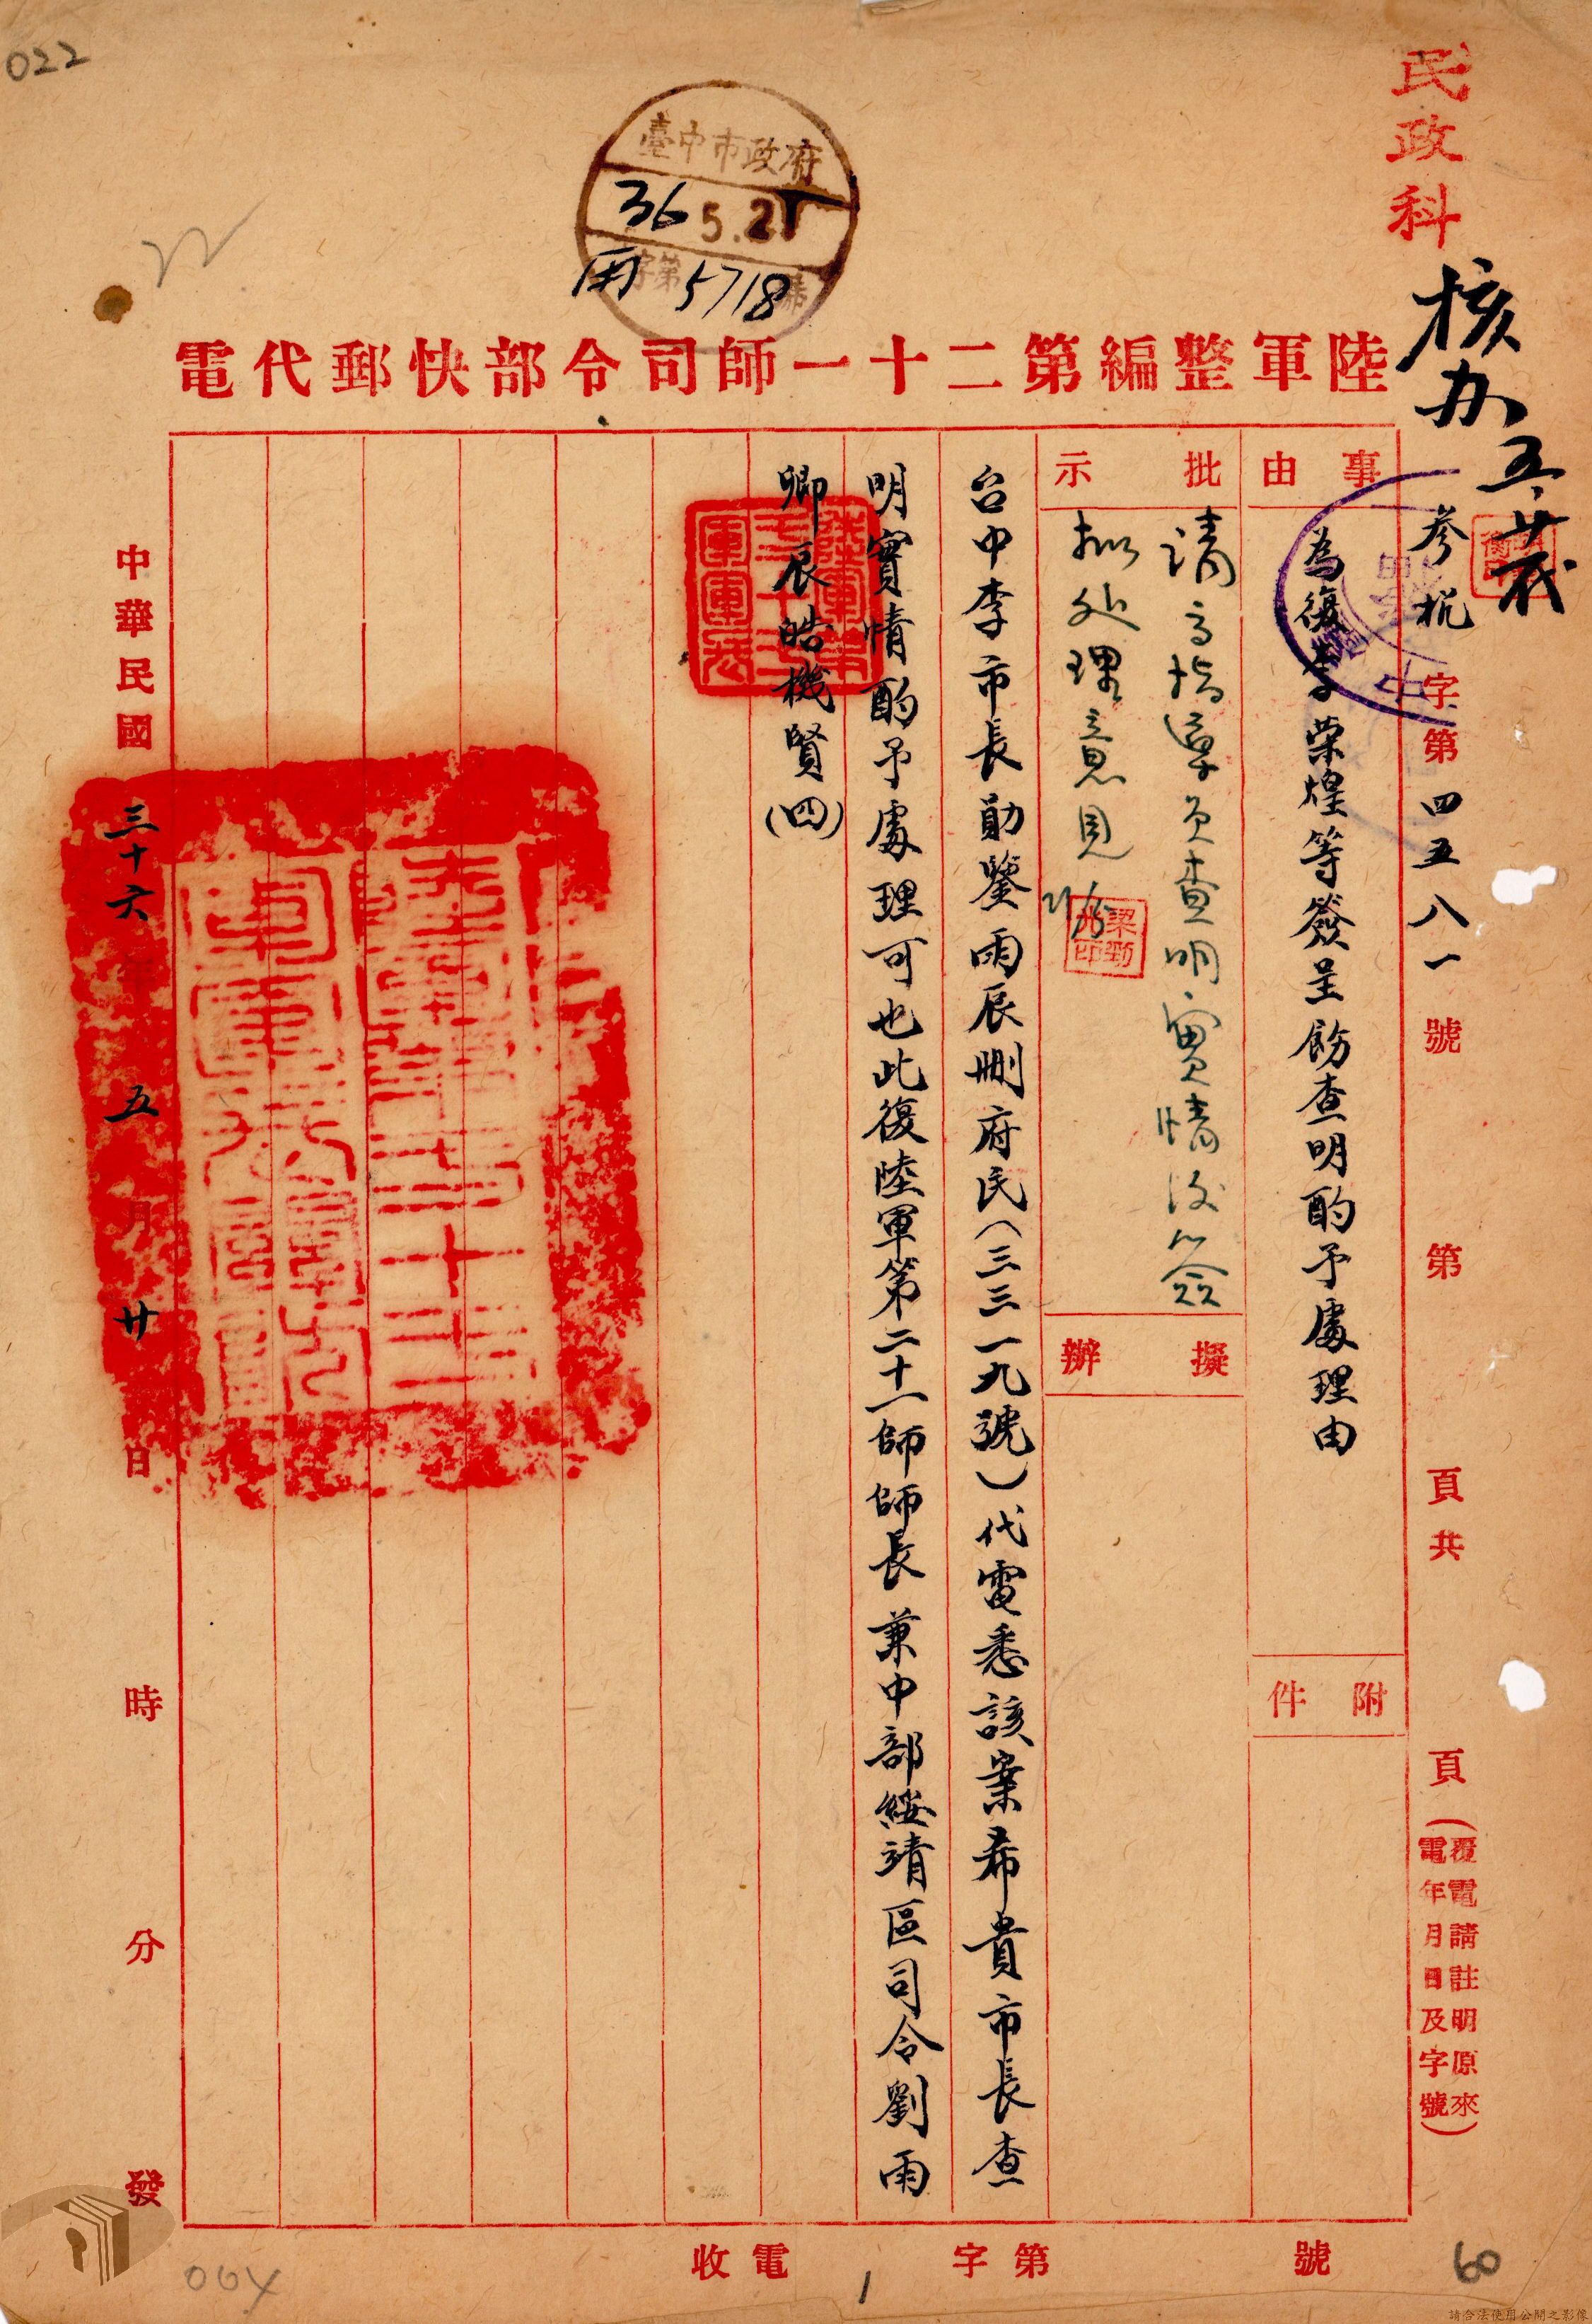 022
民政科
核办
五、廿一
臺中市政府
36 5.21
字第5718號
陸軍整編第二十一師司令部快郵代電
參杭字第四五八一號 第 頁共 頁
(覆電請註明原來
電年月日及字號)
事由
為復李荣煌等簽呈飭查明酌予處理由
附件
批示
請高指導員查明實情後簽
拟处理意見
擬辦
台中李市長勛鑒雨辰刪府民(三三一九號)代電悉該案希貴市長查
明實情酌予處理可也此復陸軍第二十一師師長兼中部綏靖區司令劉雨
卿辰皓機賢(四)
中華民國三十六年五月廿日 時 分 發
收電 字第 號
004
1
60
請合法使用公開之影像